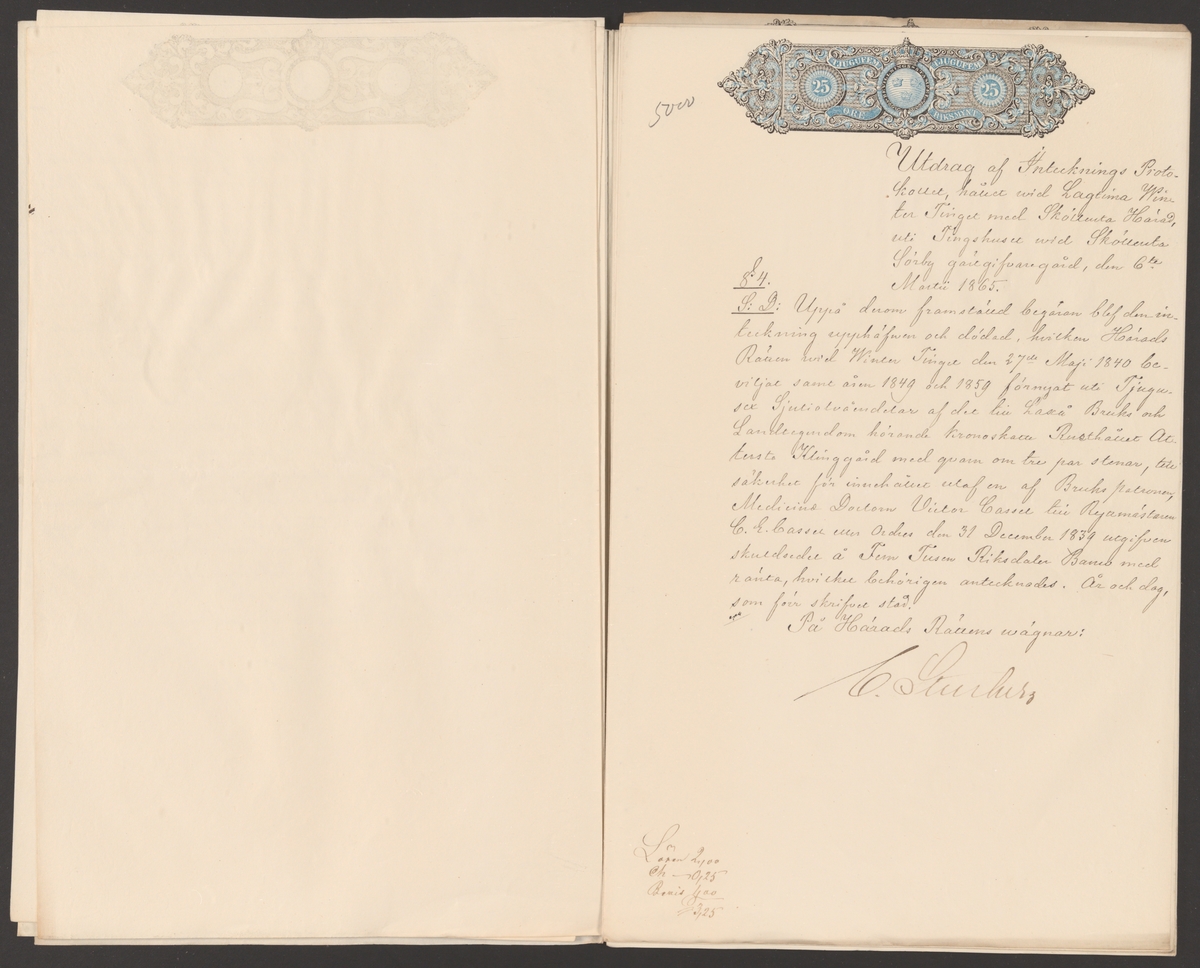 5000
TJUGUFEM TJUGUFEM
25 25
ÖRE RIKSMYNT
Utdrag af Inteknings Proto-
kollet, hållet wid Lagtima Win-
ter Tinget med Skyllersta Härad,
uti Tingshuset wid Skyllersta
Sörby gästgifvaregård, den 6te
Martii 1865.
§ 4.
S: D: Uppå derom framställd begäran blef den in-
tekning upphäfwen och dödad, hvilken Härads
Rätten wid Winter Tinget den 27de Maji 1840 be-
viljat samt åren 1849 och 1859 förnyat uti Tjugu-
sex Sjutiotvåendelar af det till Laxå Bruks och
Landtegendom hörande Kronoskatte Rusthållet At-
tersta Klinggård med qvarn om tre par stenar, till
säkerhet för innehållet utaf en af Bruks patronen,
Medicinæ Doctorn Victor Cassel till Ryamästaren
C. E. Cassel eller Ordres den 31 December 1839 utgifven
skuldsedel å Fem Tusen Riksdaler Banco med
ränta, hvilket behörigen antecknades. År och dag,
som förr skrifvet stad.
På Härads Rättens wägnar:
C.
Lösen 2,00
Ch — 0,25
Bevis 1,00
3,25